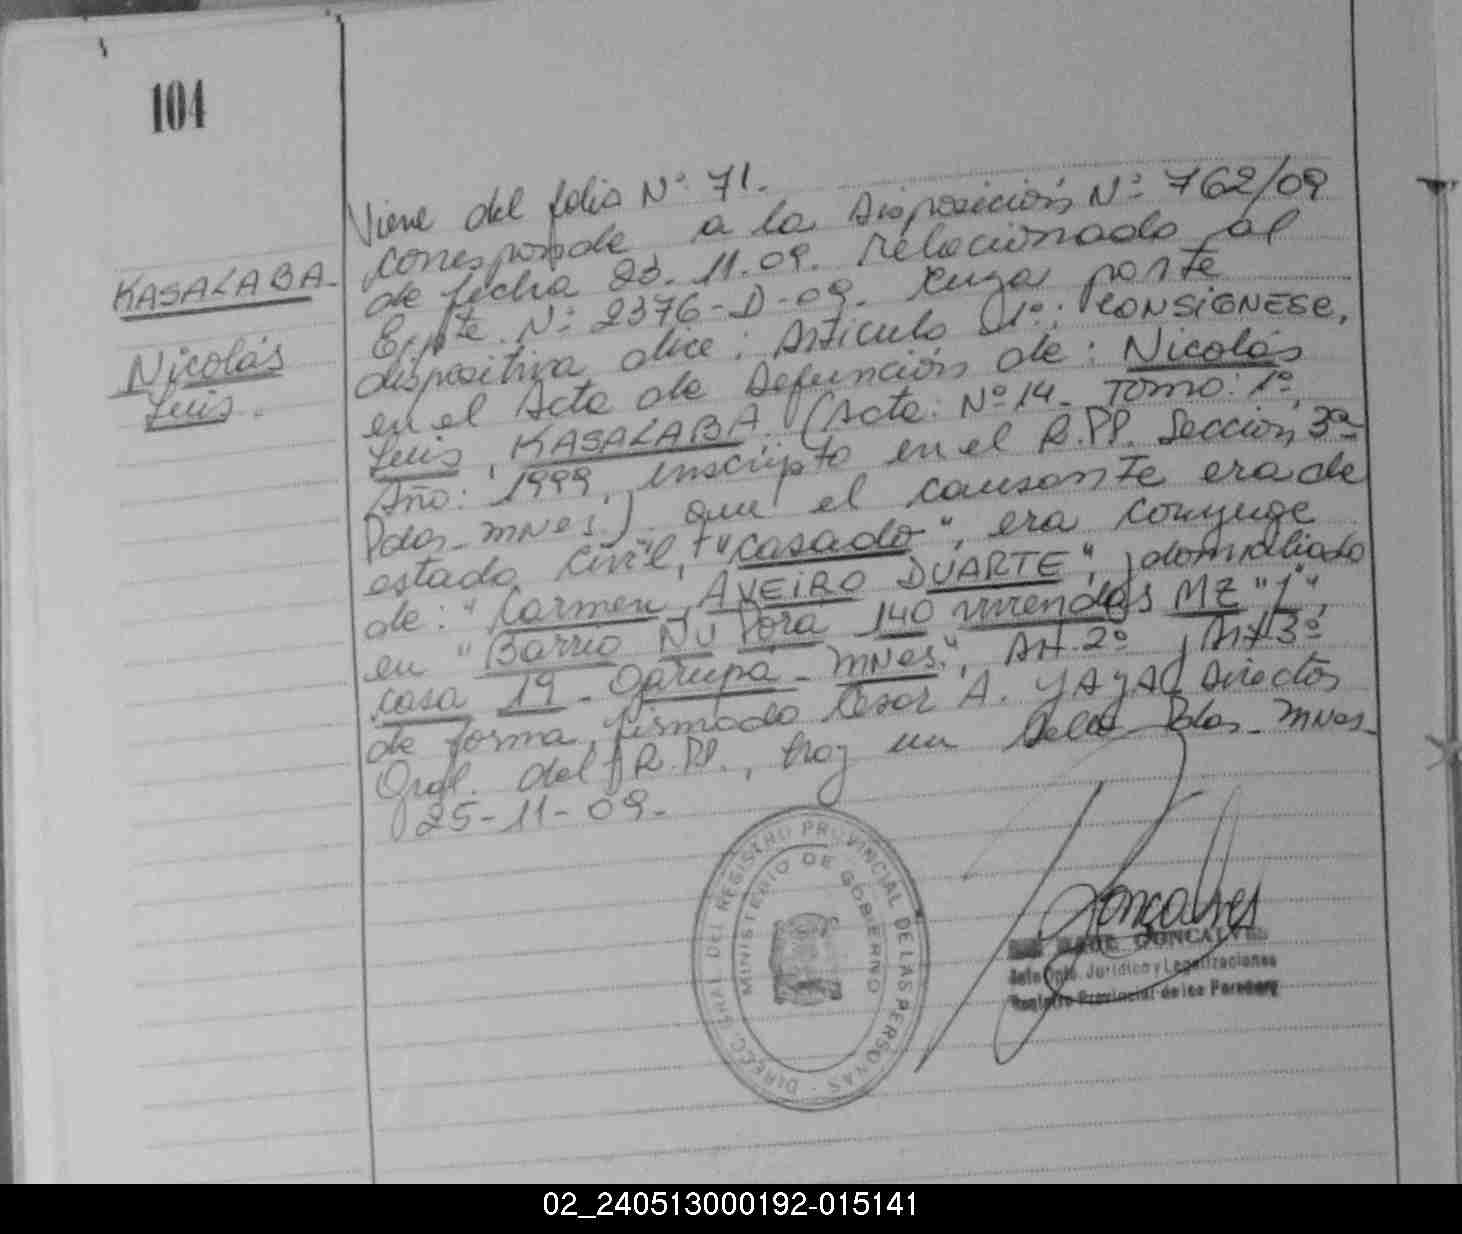 104
KASALABA-
Nicolás
Luis.
Viene del folio Nº 71.
corresponde a la Disposición Nº 762/09
de fecha 23.11.09. relacionado al
Expte. Nº 2376-D-09. cuya parte
dispositiva dice: Artículo 1º: CONSIGNESE,
en el Acta de Defunción de: Nicolás
Luis, KASALABA, (Acta: Nº 14_ Tomo: 1º,
Año: 1999, inscripto en el R.PP. Sección 3ª
Pdas_ mNes.) que el causante era de
estado civil, "casado", era conyuge
de: "Carmen AVEIRO DUARTE", domiciliado
en "Barrio ÑU Porá 140 viviendas MZ "1",
casa 19 - Garupá - mNes.", Art. 2º, Art 3º
de forma, firmado Cesar A. YAYA Director
Gral. del R.PP., hay un sello Pdas_ mNes_
25-11-09.
DIREC. GRAL. DEL REGISTRO PROVINCIAL DE LAS PERSONAS
MINISTERIO DE GOBIERNO
Goncalves
GONCALVES
Jefe Dpto. Jurídico y Legalizaciones
Registro Provincial de las Personas
02_240513000192-015141